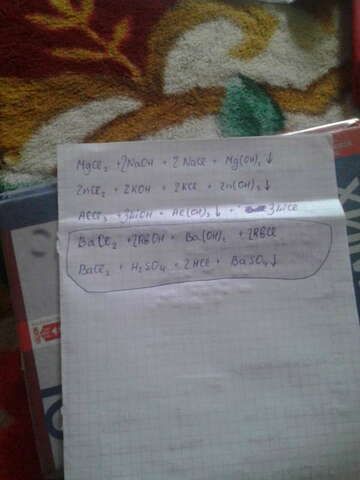 MgCl₂ + 2NaOH + 2NaCl + Mg(OH)₂↓
ZnCl₂ + 2KOH + 2KCl + Zn(OH)₂↓
AlCl₃ + 3LiOH + Al(OH)₃↓ + 3LiCl
BaCl₂ + 2RbOH + Ba(OH)₂ + 2RbCl
BaCl₂ + H₂SO₄ + 2HCl + BaSO₄↓